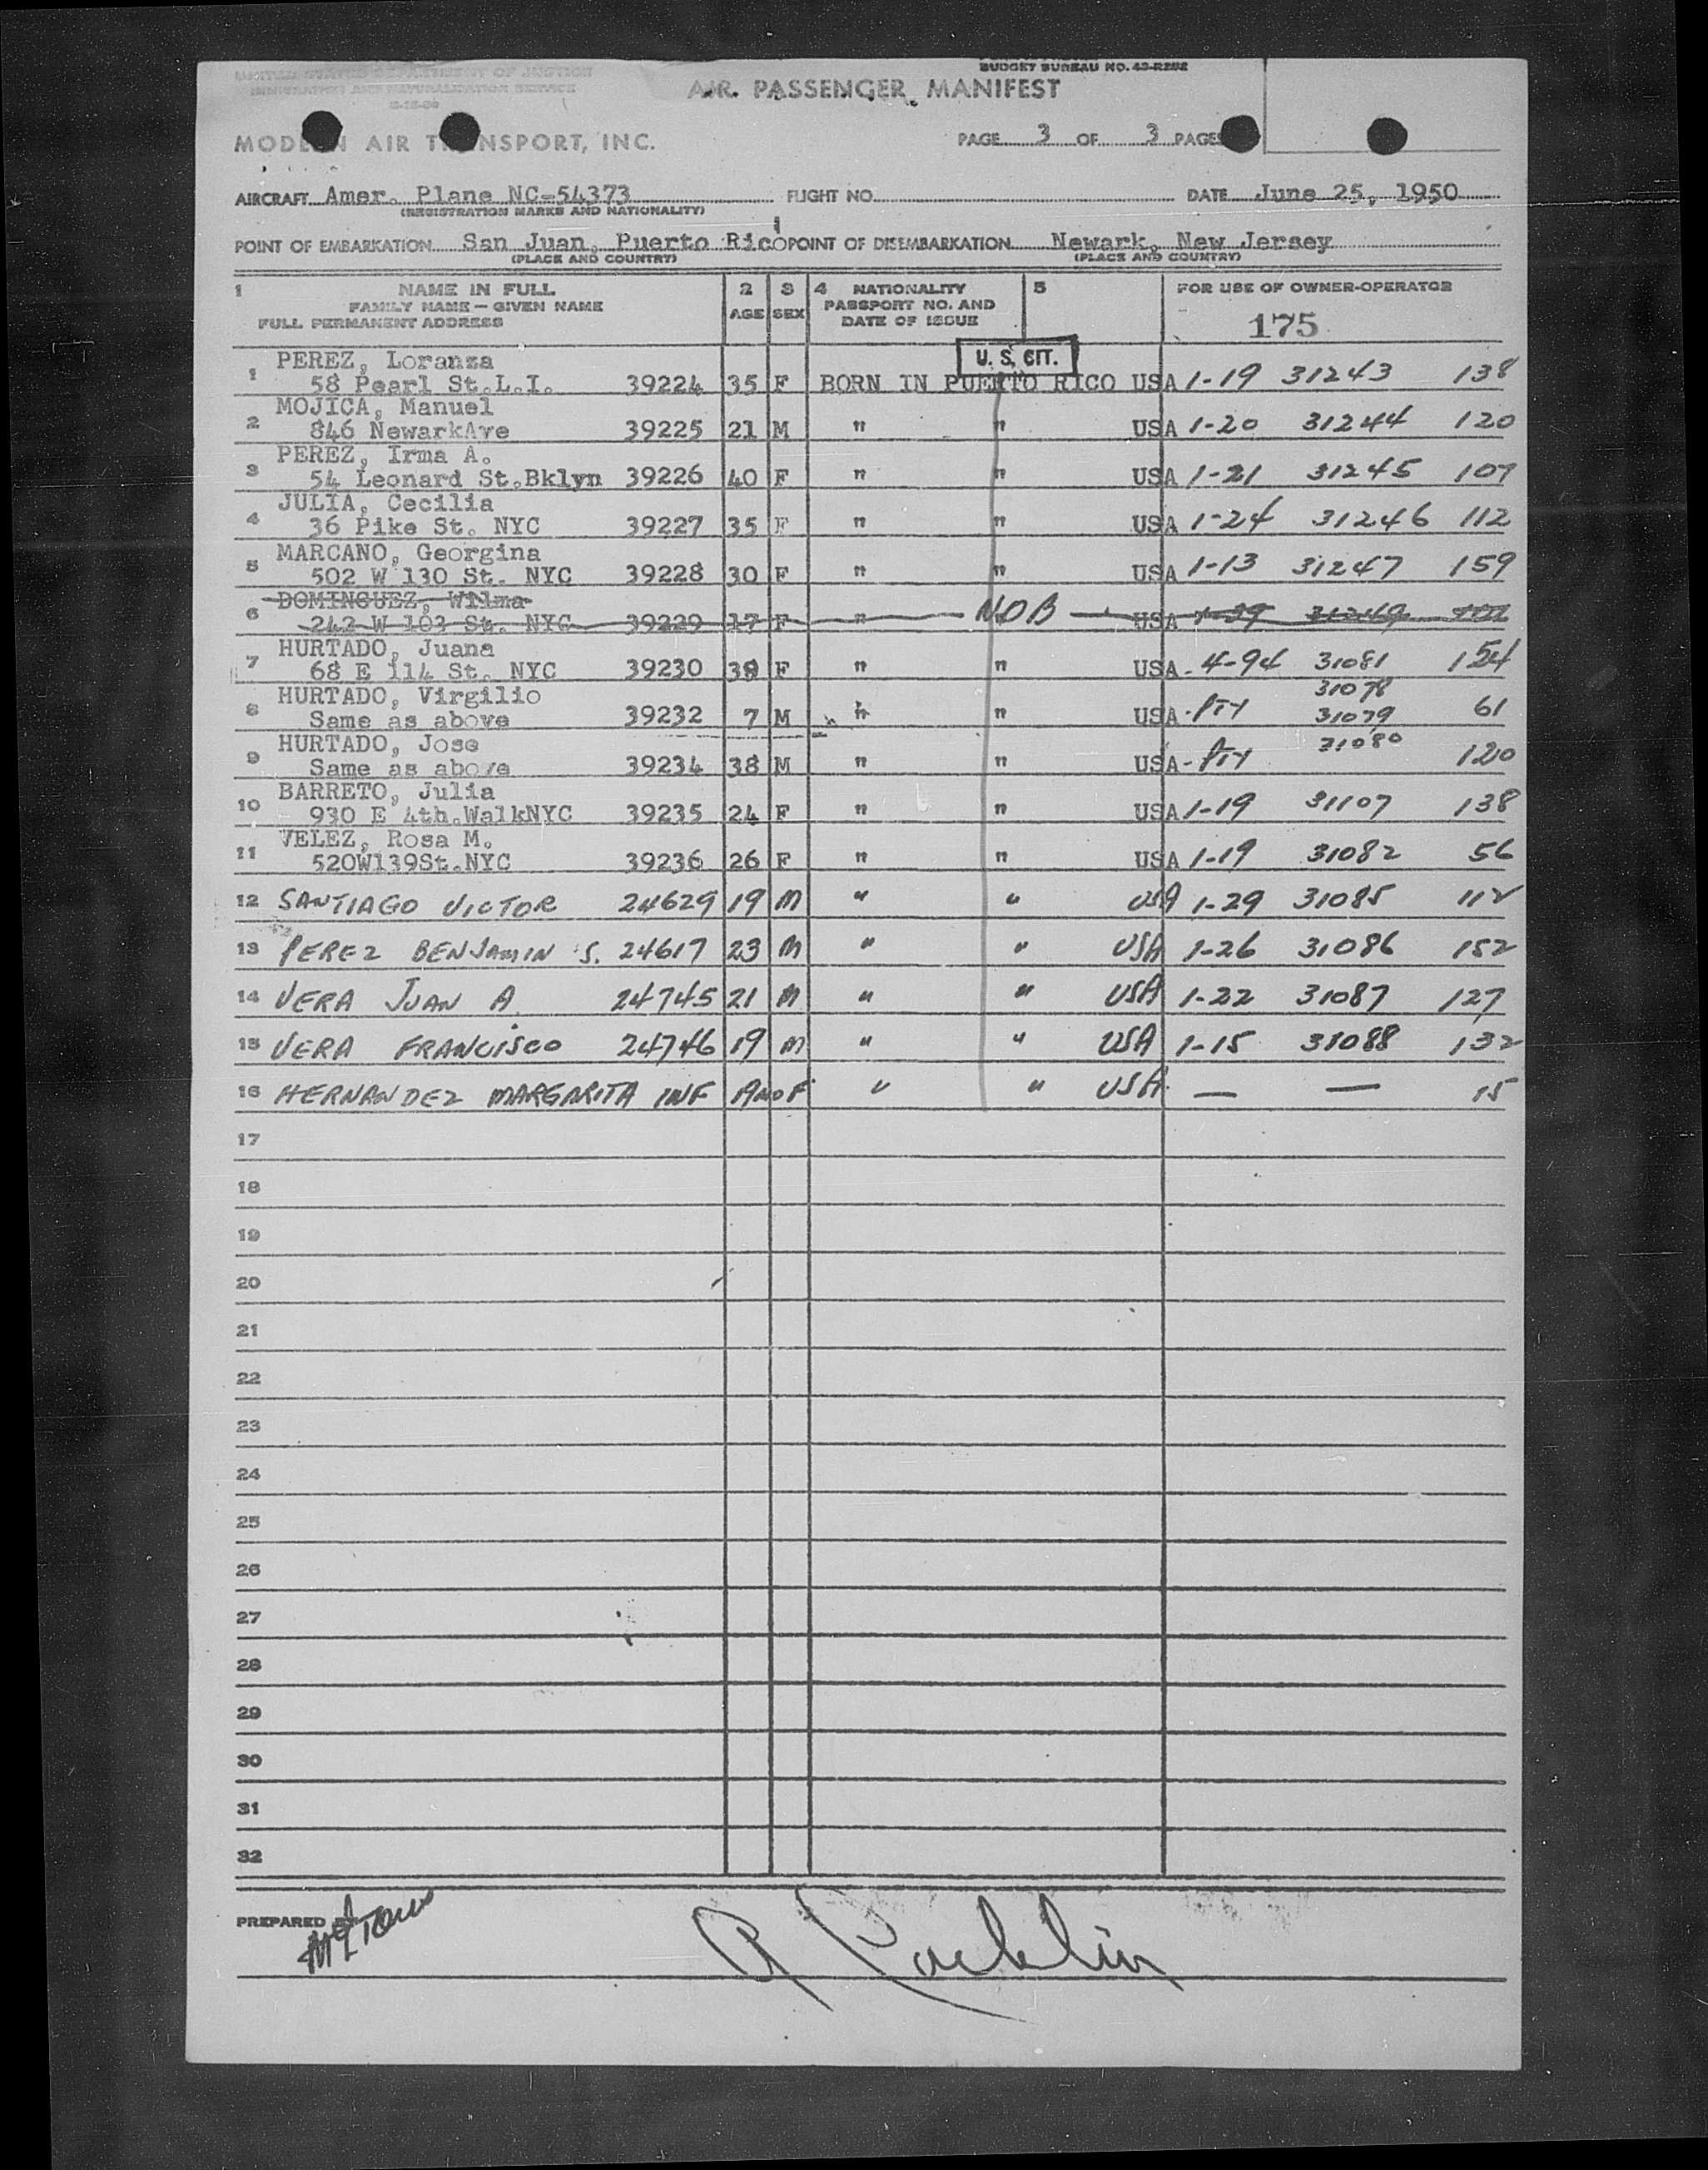 UNITED STATES DEPARTMENT OF JUSTICE
IMMIGRATION AND NATURALIZATION SERVICE
BUDGET BUREAU NO. 43-R252
AIR PASSENGER MANIFEST
MODERN AIR TRANSPORT, INC.
PAGE 3 OF 3 PAGES
AIRCRAFT Amer. Plane NC-54373 FLIGHT NO. DATE June 25, 1950
(REGISTRATION MARKS AND NATIONALITY)
POINT OF EMBARKATION San Juan, Puerto Rico POINT OF DISEMBARKATION Newark, New Jersey
(PLACE AND COUNTRY) (PLACE AND COUNTRY)
1 NAME IN FULL 2 3 4 NATIONALITY 5 FOR USE OF OWNER-OPERATOR
FAMILY NAME — GIVEN NAME AGE SEX PASSPORT NO. AND
FULL PERMANENT ADDRESS DATE OF ISSUE 175
U. S. CIT.
1 PEREZ, Loranza
58 Pearl St.L.I. 39224 35 F BORN IN PUERTO RICO USA 1-19 31243 138
2 MOJICA, Manuel
846 NewarkAve 39225 21 M " " USA 1-20 31244 120
3 PEREZ, Irma A.
54 Leonard St.Bklyn 39226 40 F " " USA 1-21 31245 107
4 JULIA, Cecilia
36 Pike St. NYC 39227 35 F " " USA 1-24 31246 112
5 MARCANO, Georgina
502 W 130 St. NYC 39228 30 F " " USA 1-13 31247 159
6 DOMINGUEZ, Wilma
242 W 103 St. NYC 39229 17 F " NOB USA
7 HURTADO, Juana
68 E 114 St. NYC 39230 38 F " " USA - 4-94 31081 154
8 HURTADO, Virgilio 31078
Same as above 39232 7 M " " USA - PTY 31079 61
9 HURTADO, Jose 31080
Same as above 39234 38 M " " USA - PTY 120
10 BARRETO, Julia
930 E 4th.WalkNYC 39235 24 F " " USA 1-19 31107 138
11 VELEZ, Rosa M.
520W139St.NYC 39236 26 F " " USA 1-19 31082 56
12 SANTIAGO VICTOR 24629 19 M " " USA 1-29 31085 112
13 PEREZ BENJAMIN S. 24617 23 M " " USA 1-26 31086 152
14 VERA JUAN A. 24745 21 M " " USA 1-22 31087 127
15 VERA FRANCISCO 24746 19 M " " USA 1-15 31088 132
16 HERNANDEZ MARGARITA INF F " " USA — — 15
17
18
19
20
21
22
23
24
25
26
27
28
29
30
31
32
PREPARED